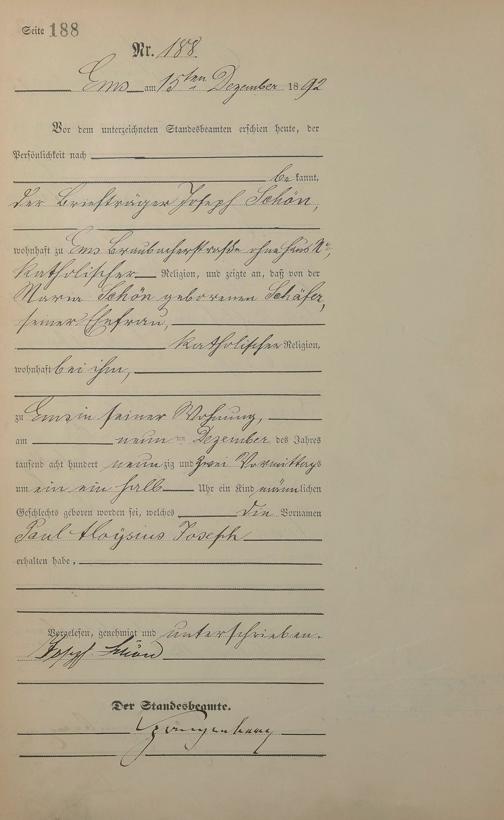 Seite 188
Nr. 188.
Ems am 15ten Dezember 1892
Vor dem unterzeichneten Standesbeamten erschien heute, der
Persönlichkeit nach
bekannt,
der Briefträger Joseph Schön,
wohnhaft zu Ems Braubacherstraße ohne Haus No,
katholischer Religion, und zeigte an, daß von der
Maria Schön geborenen Schäfer,
seiner Ehefrau,
katholischer Religion,
wohnhaft bei ihm,
zu Ems in seiner Wohnung,
am neun ten Dezember des Jahres
tausend acht hundert neunzig und zwei Vormittags
um ein ein halb Uhr ein Kind männlichen
Geschlechts geboren worden sei, welches die Vornamen
Paul Aloÿsius Joseph
erhalten habe,
Vorgelesen, genehmigt und unterschrieben.
Joseph Schön
Der Standesbeamte.